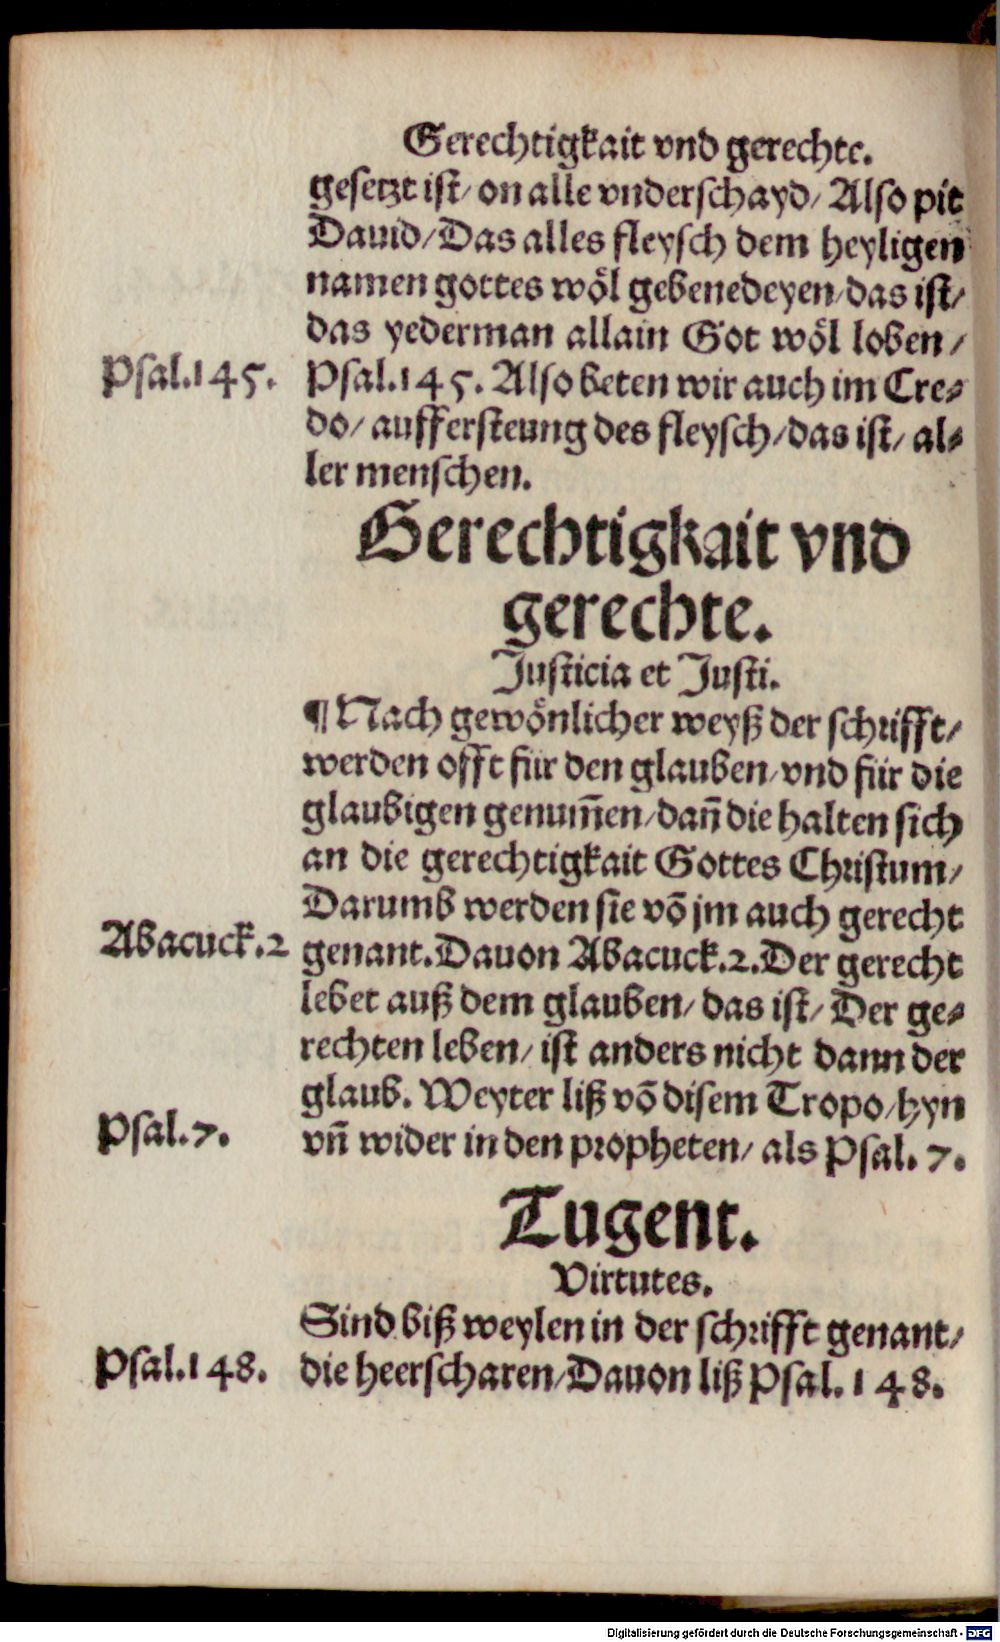 Gerechtigkait vnd gerechte.
gesetzt ist/ on alle vnderschayd/ Also pit
Dauid/Das alles fleysch dem heyligen
namen gottes woͤl gebenedeyen/das ist/
das yederman allain Got woͤl loben/
Psal.145.
Psal.145. Also beten wir auch im Cre⸗
do/ auffersteung des fleysch/das ist/ al⸗
ler menschen.
Gerechtigkait vnd
gerechte.
Justicia et Justi.
¶Nach gewoͤnlicher weyß der schrifft/
werden offt für den glauben/vnd für die
glaubigen genum̄en/dan̄ die halten sich
an die gerechtigkait Gottes Christum/
Darumb werden sie võ jm auch gerecht
Abacuck.2
genant.Dauon Abacuck.2.Der gerecht
lebet auß dem glauben/ das ist/ Der ge⸗
rechten leben/ ist anders nicht dann der
glaub. Weyter liß võ disem Tropo/hyn
Psal.7.
vn̄ wider in den propheten/ als Psal. 7.
Tugent.
Virtutes.
Sind biß weylen in der schrifft genant/
Psal.148.
die heerscharen/Dauon liß Psal.148.
Digitalisierung gefördert durch die Deutsche Forschungsgemeinschaft - DFG